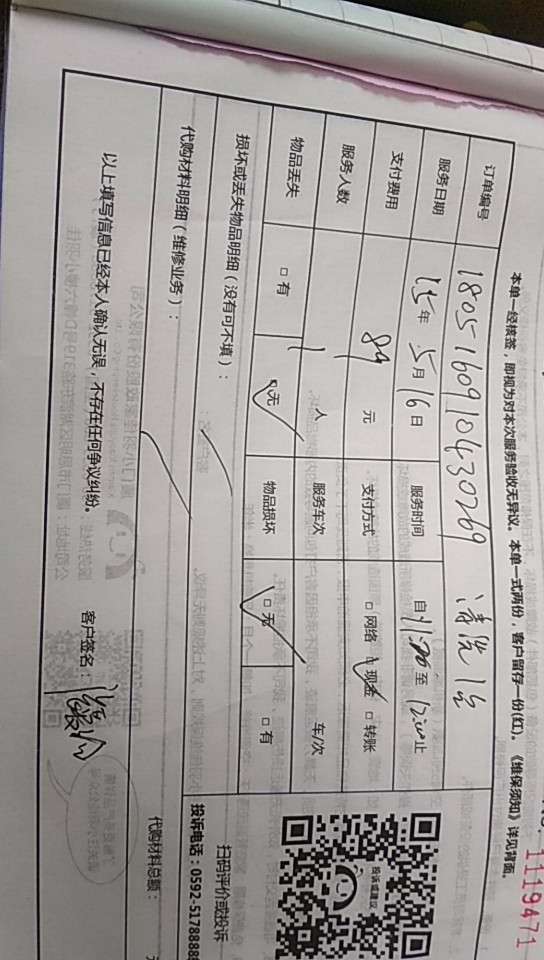 No. 1119471
本单一经核签，即视为对本次服务验收无异议。本单一式两份，客户留存一份(红)。《维保须知》详见背面。
订单编号 180516091043０269 清洗1台
服务日期 15年 5月 16日 服务时间 自 11:00 至 12:00 止
支付费用 89 元 支付方式 □网络 ☑现金 □转账
服务人数 1 人 服务车次 车/次
物品丢失 □有 ☑无 物品损坏 ☑无 □有
损坏或丢失物品明细（没有可不填）：
扫码评价或投诉
投诉电话：0592-5178888
投诉或建议
代购材料明细（维修业务）：
代购材料总额：
以上填写信息已经本人确认无误，不存在任何争议纠纷。
客户签名：